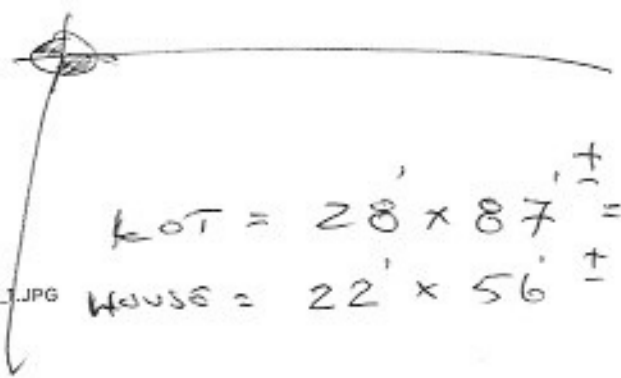 LOT = 28' x 87' ± =
_1.JPG HOUSE = 22' x 56' ±